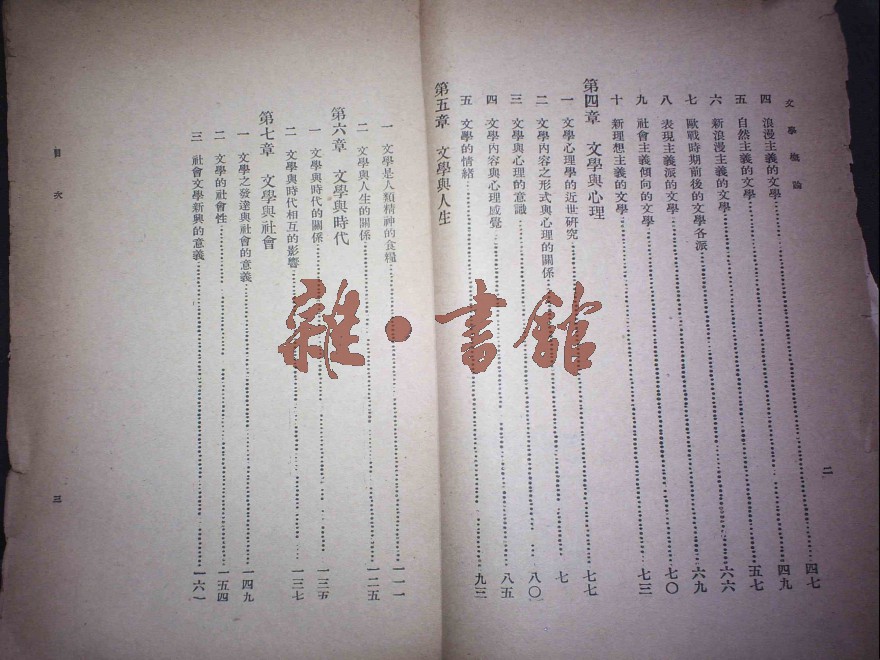 文學概論
二
四 浪漫主義的文學……四七
五 自然主義的文學……四九
六 新浪漫主義的文學……五七
七 歐戰時期前後的文學各派……六六
八 表現主義派的文學……六九
九 社會主義傾向的文學……七〇
十 新理想主義的文學……七三
第四章 文學與心理
一 文學心理學的近世研究……七七
二 文學內容之形式與心理的關係……七
三 文學與心理的意識……八〇
四 文學內容與心理感覺……八五
五 文學的情緒……九三
第五章 文學與人生
一 文學是人類精神的食糧……一一一
二 文學與人生的關係……一二五
第六章 文學與時代
一 文學與時代的關係……一三五
二 文學與時代相互的影響……一三七
第七章 文學與社會
一 文學之發達與社會的意義……一四九
二 文學的社會性……一五四
三 社會文學新興的意義……一六一
目次
三
雜·書館